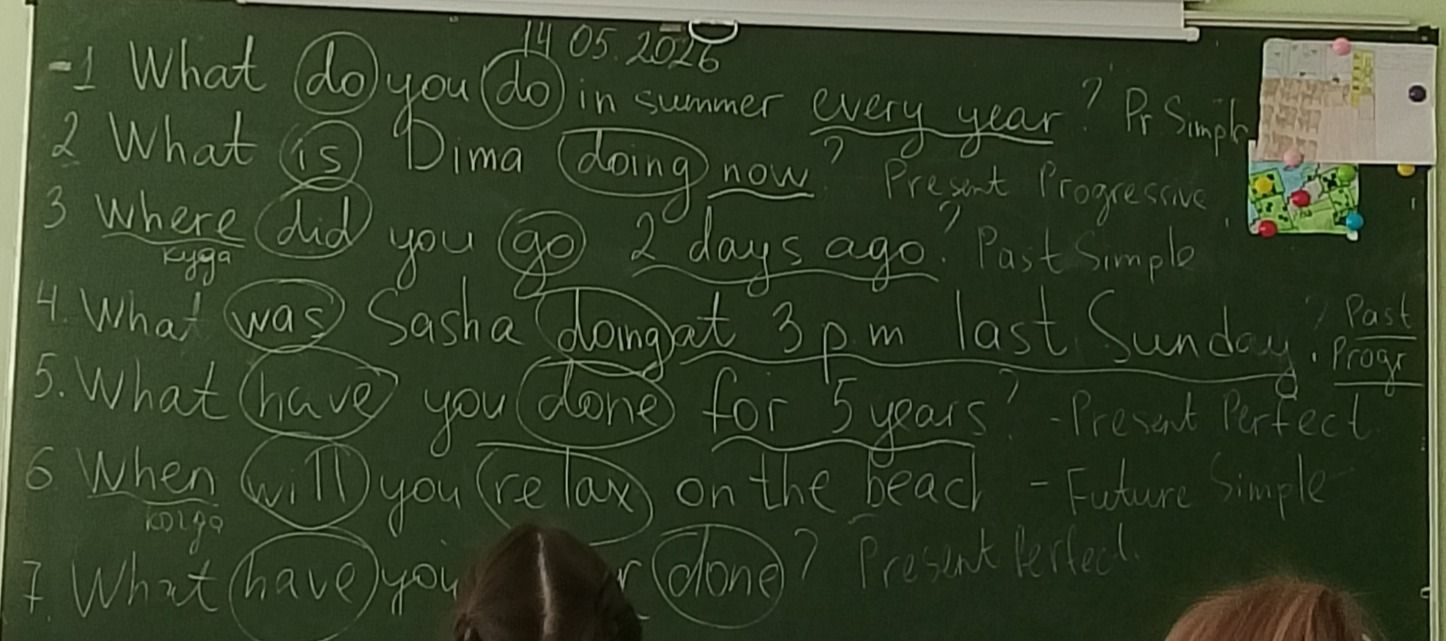 14 05.2026
-1 What do you do in summer every year? Pr Simple
2 What is Dima doing now? Present Progressive
3 where did you go 2 days ago? Past Simple
куда
4. What was Sasha doing at 3 p m last Sunday? Past Progr
5. What have you done for 5 years? - Present Perfect
6 When will you relax on the beach - Future Simple
когда
7. What have you done? Present Perfect